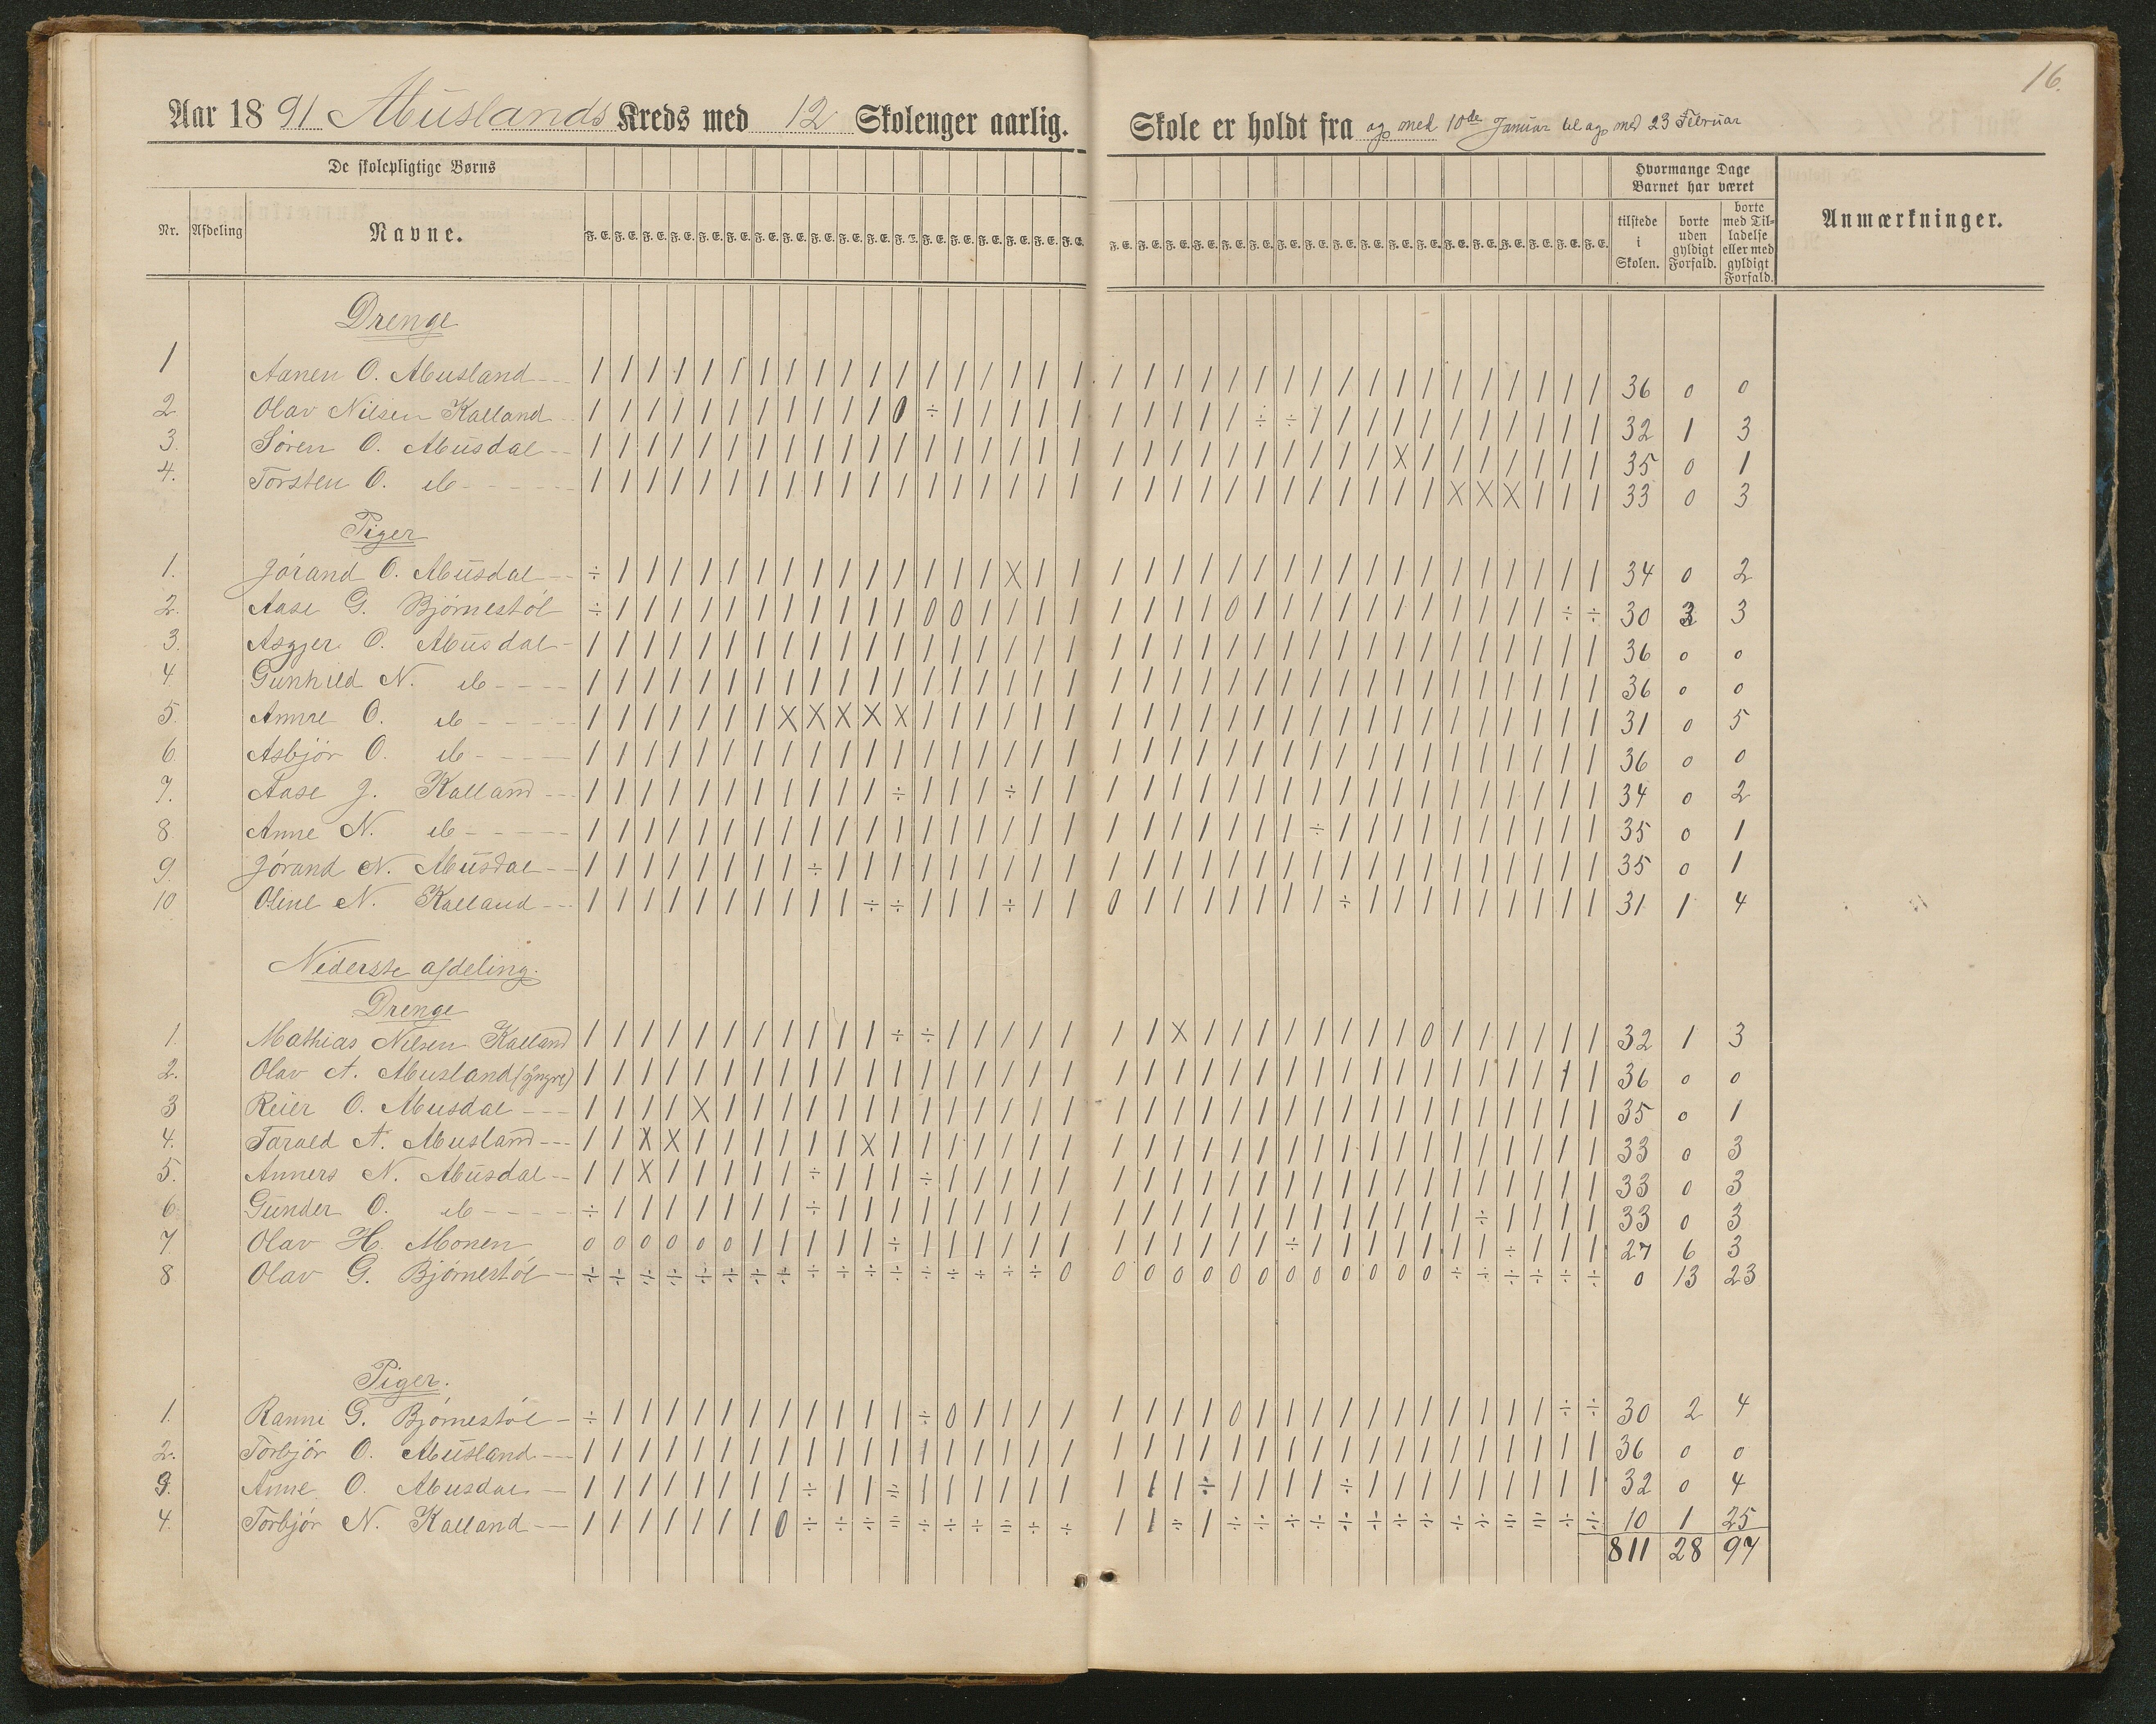 16.
Aar 1891 Abuslands Kreds med 12 Skoleuger aarlig. Skole er holdt fra og med 10de Januar til og med 23 Februar
De skolepligtige Børns
Hvormange Dage Barnet har været
Nr. Afdeling Navne. F. E. tilstede i Skolen. borte uden gyldigt Forfald. borte med Tilladelse eller med gyldigt Forfald. Anmærkninger.
Drenge
1 Aanen O. Abusland 36 0 0
2 Olav Nilsen Kalland 32 1 3
3. Sören O. Abusdal 35 0 1
4. Torsten O. do 33 0 3
Piger
1. Jórand O. Abusdal 34 0 2
2. Aase G. Bjórnestöl 30 3 3
3. Asgjer O. Abusdal 36 0 0
4 Gunhild N. do 36 0 0
5. Anne O. do 31 0 5
6 Asbjör O. do 36 0 0
7. Aase J. Kalland 34 0 2
8 Anne N. do 35 0 1
9. Jórand N. Abusdal 35 0 1
10 Oline N. Kalland 31 1 4
Nederste afdeling.
Drenge
1. Mathias Nilsen Kalland 32 1 3
2. Olav A. Abusland (yngre) 36 0 0
3 Reier O. Abusdal 35 0 1
4. Tarald A. Abusland 33 0 3
5. Anners N. Abusdal 33 0 3
6 Gunder O. do 33 0 3
7. Olav H. Monen 27 6 3
8 Olav G. Bjórnestöl 0 13 23
Piger.
1. Ranni G. Bjórnestöl 30 2 4
2. Torbjör O. Abusland 36 0 0
3. Anne O. Abusdal 32 0 4
4. Torbjör N. Kalland 10 1 25
811 28 97